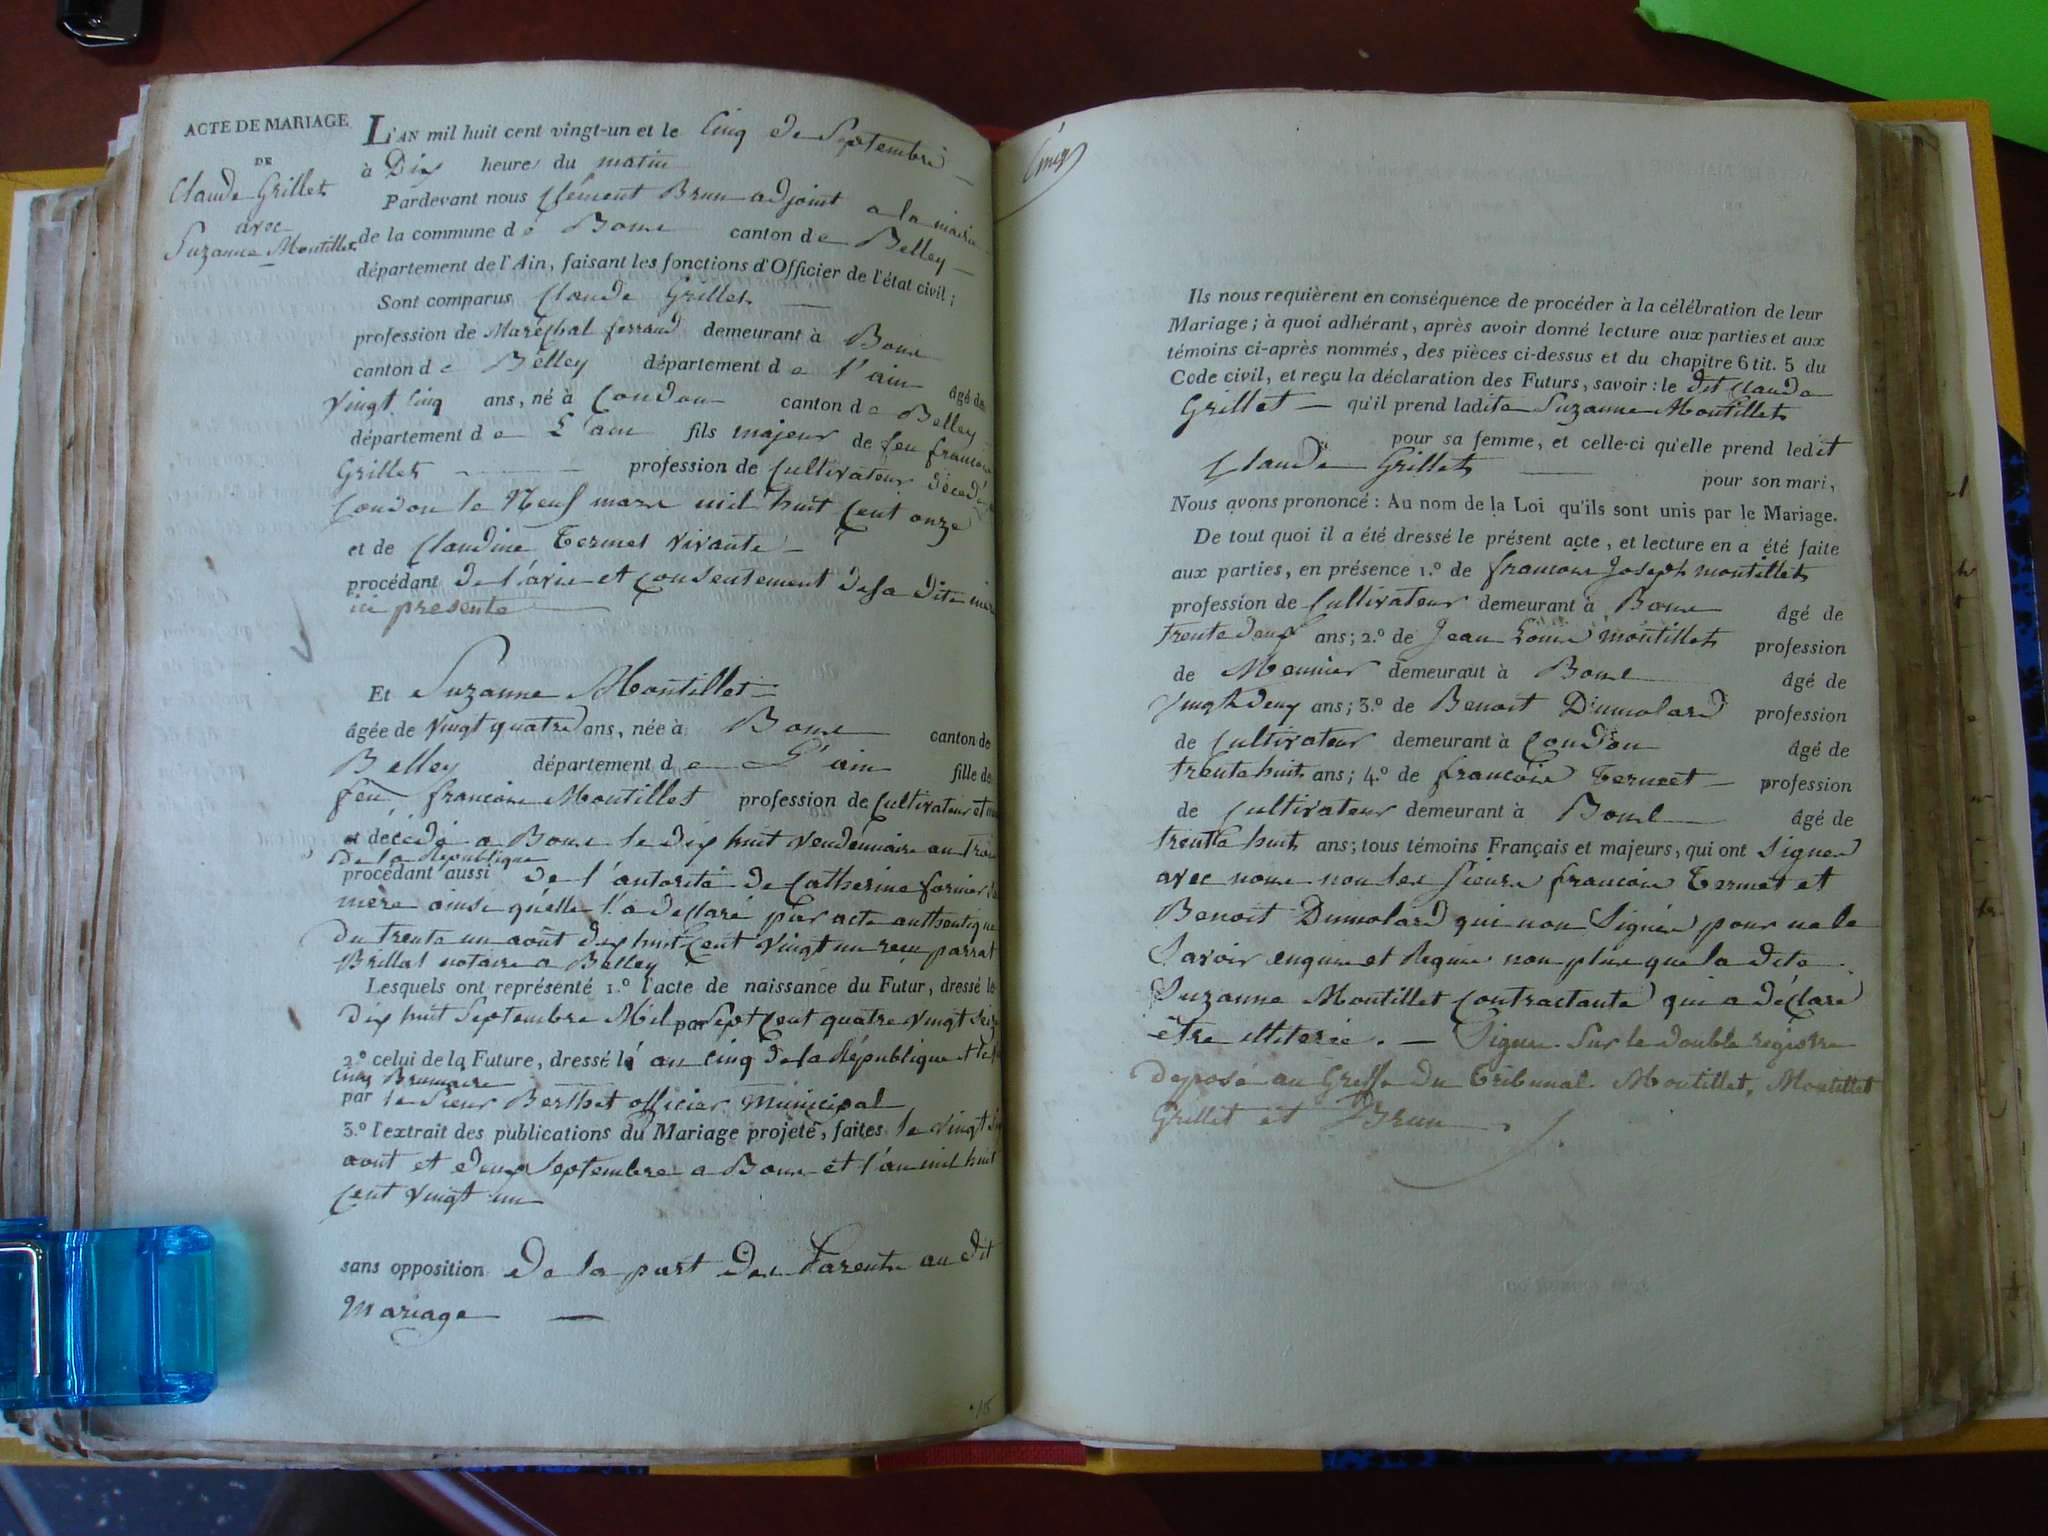 ACTE DE MARIAGE
DE
Claude Grillet
avec
Suzanne Montillet
L'AN mil huit cent vingt-un et le Cinq de Septembre
à Dix heure du matin
Pardevant nous Clément Brun adjoint a la mairie
de la commune de canton de Belley
département de l'Ain, faisant les fonctions d'Officier de l'état civil;
Sont comparus Claude Grillet
profession de Maréchal ferrand demeurant à
canton de Belley département de l'ain âgé de
vingt Cinq ans, né à Condon canton de Belley
département de L'ain fils majeur de feu francois
Grillet profession de Cultivateur décédé
Condon le Neuf mars mil huit Cent onze
et de Claudine Termet vivante
procédant de l'avis et Consentement de sa dite mère
ici presente
Et Suzanne Montillet
âgée de vingt quatre ans, née à canton de
Belley département de L'ain fille de
feu francois Montillet profession de Cultivateur
et décédé a le dix huit vendémiaire an trois
de la République
procédant aussi de l'autorité de Catherine
mère ainsi quelle l'a déclaré par acte authentique
du trente un août dix huit Cent vingt un reçu
Brillat notaire a Belley
Lesquels ont représenté 1.º l'acte de naissance du Futur, dressé le
dix huit Septembre Mil Sept Cent quatre vingt seize
par
2.º celui de la Future, dressé le an Cinq de la République et le
Cinq Brumaire
par le Sieur Berthet officier Municipal
3.º l'extrait des publications du Mariage projeté, faites le vingt
août et deux Septembre a et l'an mil huit
Cent vingt un
sans opposition de la part des Parents au dit
Mariage
Ils nous requièrent en conséquence de procéder à la célébration de leur
Mariage; à quoi adhérant, après avoir donné lecture aux parties et aux
témoins ci-après nommés, des pièces ci-dessus et du chapitre 6 tit. 5 du
Code civil, et reçu la déclaration des Futurs, savoir: le dit Claude
Grillet qu'il prend ladite Suzanne Montillet
pour sa femme, et celle-ci qu'elle prend ledit
Claude Grillet pour son mari,
Nous avons prononcé: Au nom de la Loi qu'ils sont unis par le Mariage.
De tout quoi il a été dressé le présent acte, et lecture en a été faite
aux parties, en présence 1.º de francois Joseph montillet
profession de Cultivateur demeurant à âgé de
trente deux ans; 2.º de Jean Louis montillet profession
de Meunier demeuraut à âgé de
vingt deux ans; 3.º de Benoit Dumolard profession
de Cultivateur demeurant à Condon âgé de
trente huit ans; 4.º de francois Termet profession
de Cultivateur demeurant à âgé de
trente huit ans; tous témoins Français et majeurs, qui ont signer
avec nous non les sieurs francois Termet et
Benoit Dumolard qui non Signés pour ne le
Savoir enquis et Requis non plus que la dite
Suzanne Montillet Contractante qui a déclaré
être illitérée. — Signer Sur le double registre
déposé au Greffe du Tribunal. Montillet, Montillet
Grillet et Brun